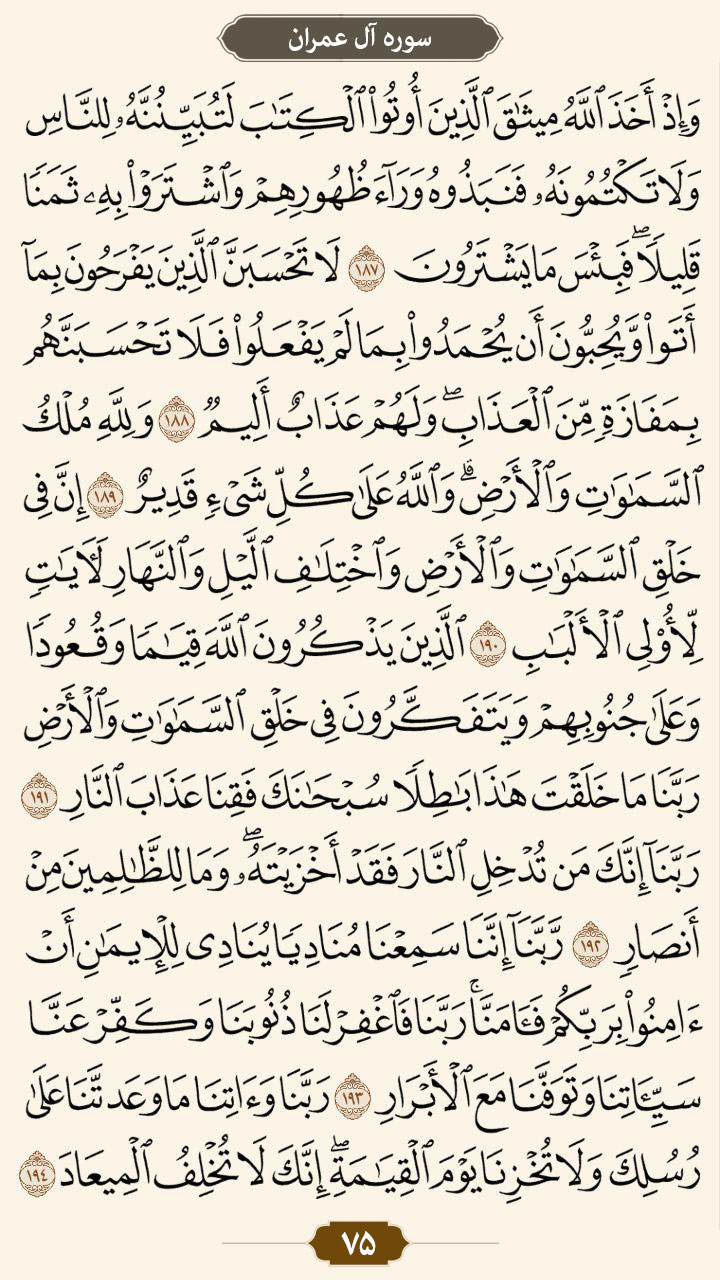 سوره آل عمران
وَإِذْ أَخَذَ ٱللَّهُ مِيثَٰقَ ٱلَّذِينَ أُوتُوا۟ ٱلْكِتَٰبَ لَتُبَيِّنُنَّهُۥ لِلنَّاسِ
وَلَا تَكْتُمُونَهُۥ فَنَبَذُوهُ وَرَآءَ ظُهُورِهِمْ وَٱشْتَرَوْا۟ بِهِۦ ثَمَنًا
قَلِيلًا ۖ فَبِئْسَ مَا يَشْتَرُونَ ١٨٧ لَا تَحْسَبَنَّ ٱلَّذِينَ يَفْرَحُونَ بِمَآ
أَتَوا۟ وَّيُحِبُّونَ أَن يُحْمَدُوا۟ بِمَا لَمْ يَفْعَلُوا۟ فَلَا تَحْسَبَنَّهُم
بِمَفَازَةٍ مِّنَ ٱلْعَذَابِ ۖ وَلَهُمْ عَذَابٌ أَلِيمٌ ١٨٨ وَلِلَّهِ مُلْكُ
ٱلسَّمَٰوَٰتِ وَٱلْأَرْضِ ۗ وَٱللَّهُ عَلَىٰ كُلِّ شَىْءٍ قَدِيرٌ ١٨٩ إِنَّ فِى
خَلْقِ ٱلسَّمَٰوَٰتِ وَٱلْأَرْضِ وَٱخْتِلَٰفِ ٱلَّيْلِ وَٱلنَّهَارِ لَءَايَٰتٍ
لِّأُو۟لِى ٱلْأَلْبَٰبِ ١٩٠ ٱلَّذِينَ يَذْكُرُونَ ٱللَّهَ قِيَٰمًا وَقُعُودًا
وَعَلَىٰ جُنُوبِهِمْ وَيَتَفَكَّرُونَ فِى خَلْقِ ٱلسَّمَٰوَٰتِ وَٱلْأَرْضِ
رَبَّنَا مَا خَلَقْتَ هَٰذَا بَٰطِلًا سُبْحَٰنَكَ فَقِنَا عَذَابَ ٱلنَّارِ ١٩١
رَبَّنَآ إِنَّكَ مَن تُدْخِلِ ٱلنَّارَ فَقَدْ أَخْزَيْتَهُۥ ۖ وَمَا لِلظَّٰلِمِينَ مِنْ
أَنصَارٍ ١٩٢ رَّبَّنَآ إِنَّنَا سَمِعْنَا مُنَادِيًا يُنَادِى لِلْإِيمَٰنِ أَنْ
ءَامِنُوا۟ بِرَبِّكُمْ فَـَٔامَنَّا ۚ رَبَّنَا فَٱغْفِرْ لَنَا ذُنُوبَنَا وَكَفِّرْ عَنَّا
سَيِّـَٔاتِنَا وَتَوَفَّنَا مَعَ ٱلْأَبْرَارِ ١٩٣ رَبَّنَا وَءَاتِنَا مَا وَعَدتَّنَا عَلَىٰ
رُسُلِكَ وَلَا تُخْزِنَا يَوْمَ ٱلْقِيَٰمَةِ ۖ إِنَّكَ لَا تُخْلِفُ ٱلْمِيعَادَ ١٩٤
٧٥